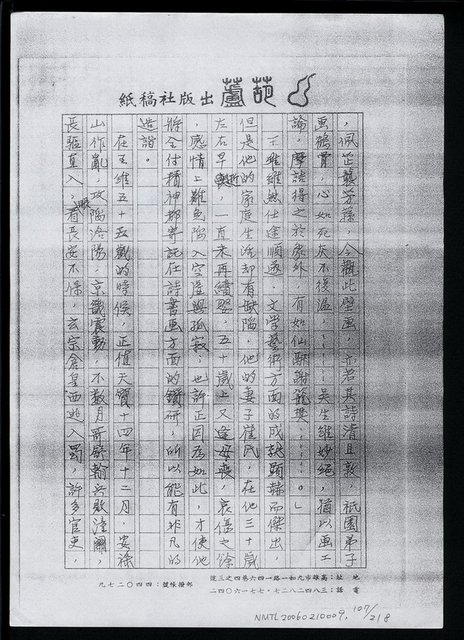 葫蘆出版社稿紙
，佩芷襲芳蓀，今觀此壁畫，亦若其詩清且敦，祇園弟子
盡鶴骨，心如死灰不復溫，……吳生雖妙絕，猶以畫工
論，摩詰得之於象外，有如仙翮謝籠樊，……。」
王維雖然仕途順遂，文學藝術方面的成就顯赫而傑出，
但是他的家庭生活却有缺陷，他的妻子崔氏，在他三十歲
左右早逝，一直未再續娶，五十歲上又逢母喪，哀傷之餘
，感情上難免陷入空虛與孤寂；也許正因為如此，才使他
將全付精神都寄託在詩書画方面的鑽研，所以能有非凡的
造詣。
在王維五十五歲的時候，正值天寶十四年十二月，安祿
山作亂，攻陷洛陽，京畿震動，不數月哥舒翰兵敗潼關，
長驅直入，眼看長安不保，玄宗倉皇西逃入蜀，許多官吏，
地址：高雄市九如一路一四六巷四之三號
電話：三八四二八二七・七七一六〇四二
郵撥帳號：四四〇二七九
NMTL20060210009, 107/218